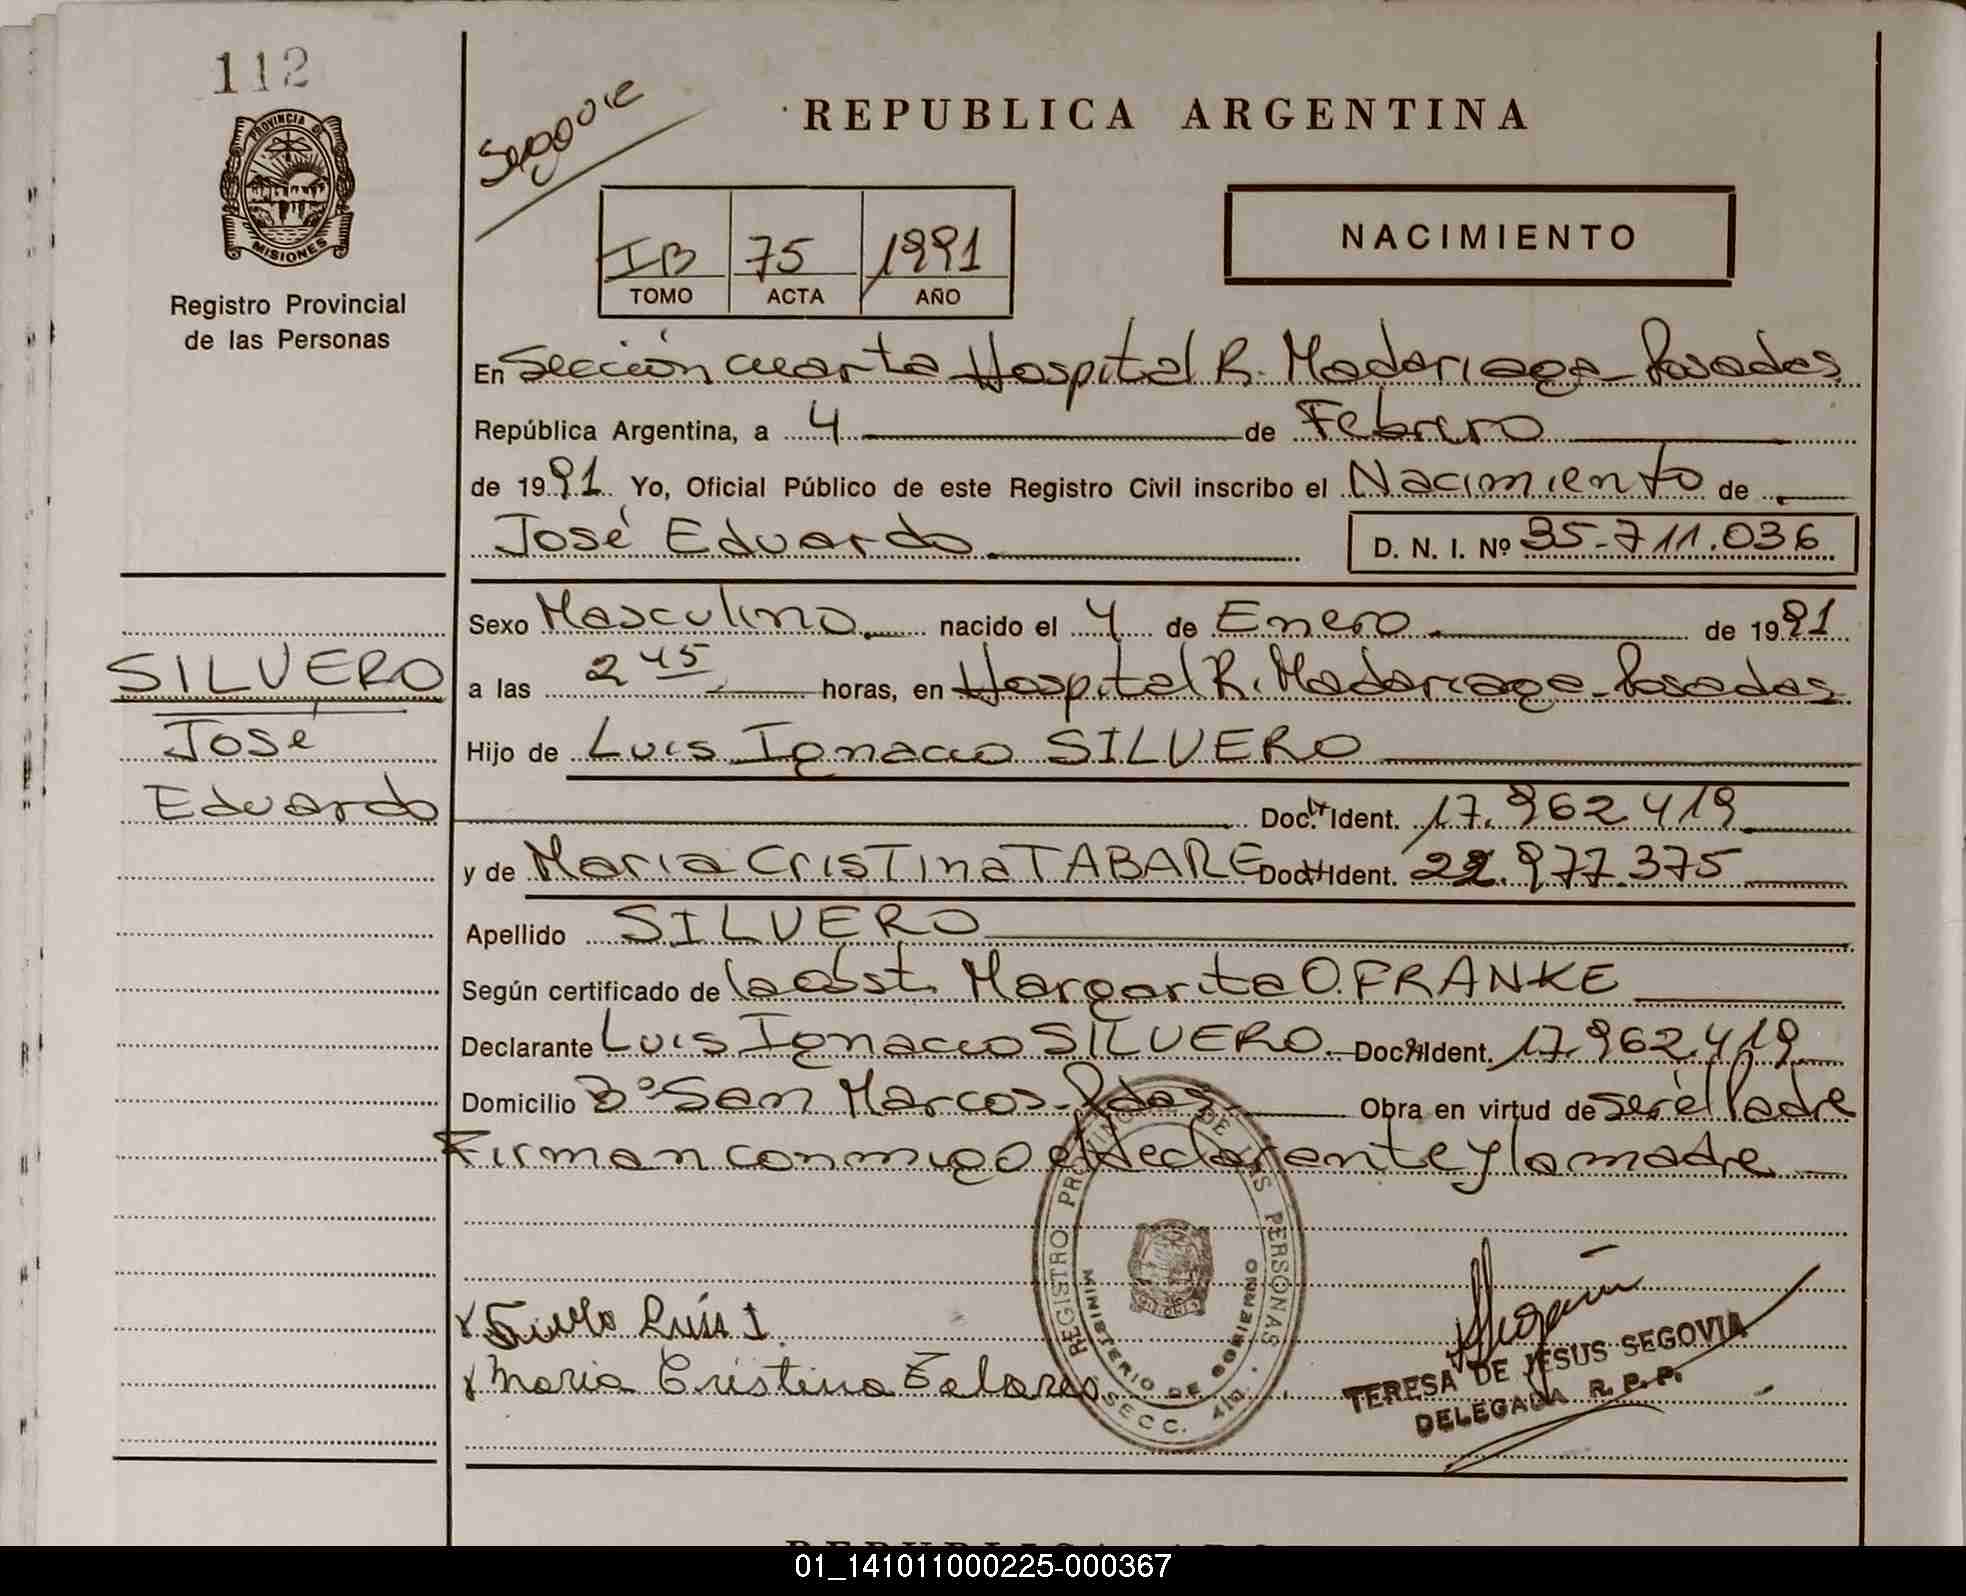 112
PROVINCIA DE
MISIONES
Registro Provincial
de las Personas
Segovia
REPUBLICA ARGENTINA
IB 75 1991
TOMO ACTA AÑO
NACIMIENTO
En Sección cuarta Hospital R. Madariaga Posadas
República Argentina, a 4 de Febrero
de 1991 Yo, Oficial Público de este Registro Civil inscribo el Nacimiento de
José Eduardo D. N. I. Nº 35-711.036
Sexo Masculino nacido el 4 de Enero de 1991
SILVERO
José
Eduardo
a las 2 45 horas, en Hospital R. Madariaga - Posadas
Hijo de Luis Ignacio SILVERO
Doc. Ident. 17.962.419
y de Maria Cristina TABARE Doc. Ident. 22.977.375
Apellido SILVERO
Según certificado de la obst. Margarita O. FRANKE
Declarante Luis Ignacio SILVERO Doc. Ident. 17.962.419
Domicilio Bº San Marcos - Pdas Obra en virtud de ser él Padre
Firman conmigo el declarante y la madre
REGISTRO PROVINCIAL DE LAS PERSONAS
MINISTERIO DE GOBIERNO
SECC. 4ta.
Luis I
Maria Cristina
TERESA DE JESUS SEGOVIA
DELEGADA R. P. P.
01_141011000225-000367